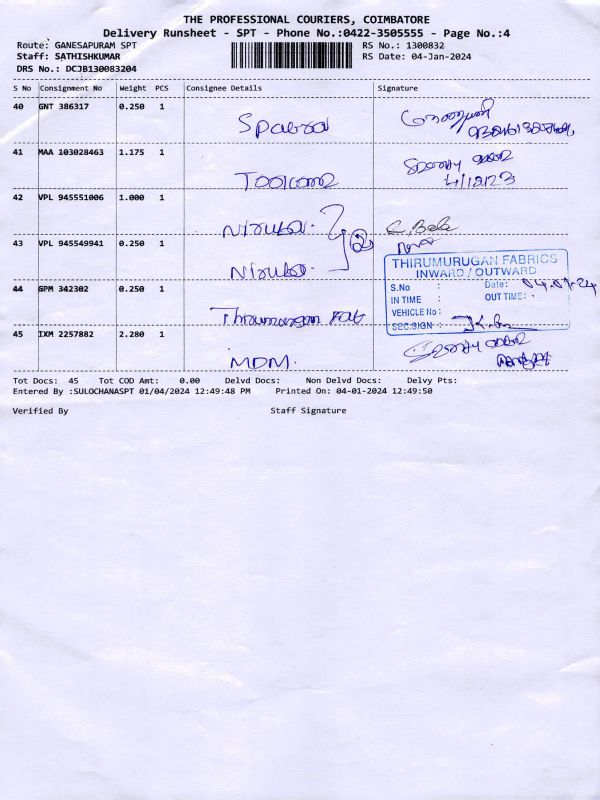 THE PROFESSIONAL COURIERS, COIMBATORE
Delivery Runsheet - SPT - Phone No.:0422-3505555 - Page No.:4
Route: GANESAPURAM SPT RS No.: 1300832
Staff: SATHISHKUMAR RS Date: 04-Jan-2024
DRS No.: DCJB130083204
S No Consignment No Weight PCS Consignee Details Signature
40 GNT 386317 0.250 1
41 MAA 103028463 1.175 1
4/12/23
42 VPL 945551006 1.000 1
C. Bala
43 VPL 945549941 0.250 1
THIRUMURUGAN FABRICS
INWARD / OUTWARD
S.No : Date: 04.01.24
IN TIME : OUT TIME:
VEHICLE No :
SEC.SIGN :
44 GPM 342302 0.250 1
Thirumurugan Fab
45 IXM 2257882 2.280 1
MDM.
Tot Docs: 45 Tot COD Amt: 0.00 Delvd Docs: Non Delvd Docs: Delvy Pts:
Entered By :SULOCHANASPT 01/04/2024 12:49:48 PM Printed On: 04-01-2024 12:49:50
Verified By Staff Signature